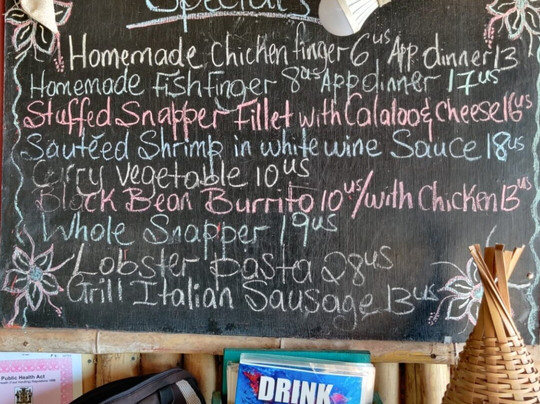 Specials
Homemade Chicken finger 6us App. dinner 13
Homemade Fishfinger 8us App dinner 17us
Stuffed Snapper Fillet with Calaloo & Cheese 16us
Sauteéd Shrimp in white wine Sauce 18us
Curry vegetable 10us
Black Bean Burrito 10us/with Chicken 13us
Whole Snapper 19us
Lobster pasta 28us
Grill Italian Sausage 13us
Public Health Act
DRINK